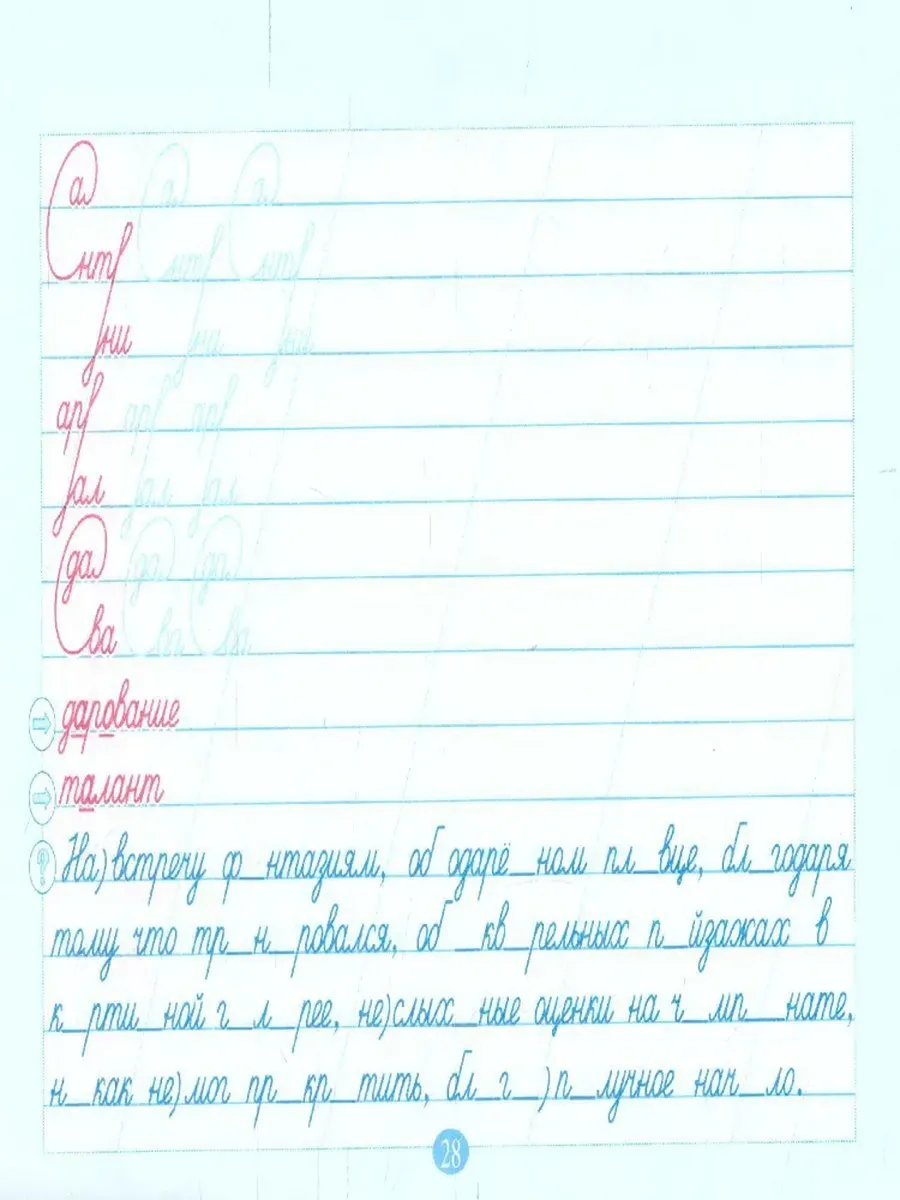 а а а
нтр нтр нтр
ни ни ни
ард ард ард
ал ал ал
да да да
ва ва ва
дарование
талант
На)встречу ф_нтазиям, об одарё_ном пл_вце, бл_годаря
тому что тр_н_ровался, об _кв_рельных п_йзажах в
к_рти_ной г_л_рее, не)слых_ные оценки на ч_мп_нате,
н_как не)мог пр_кр_тить, бл_г_)п_лучное нач_ло.
28